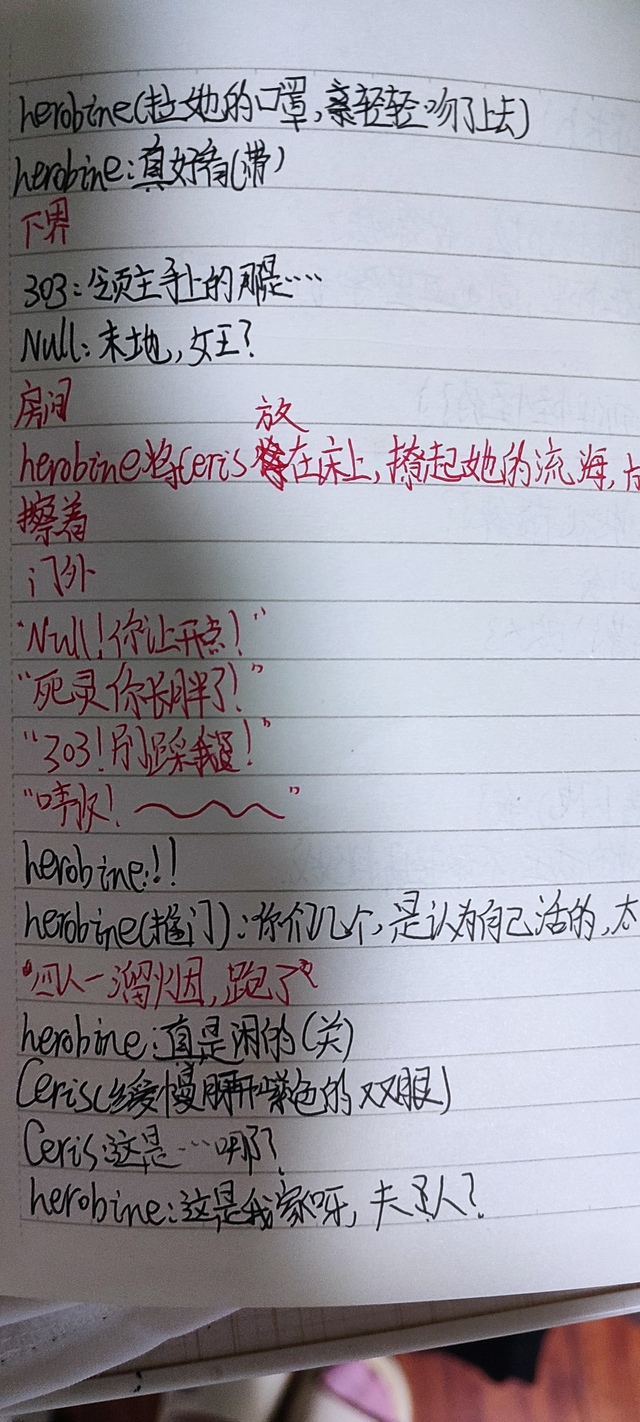 herobine(拉她的口罩,亲轻轻吻了上去)
herobine:真好看(带)
下界
303:领主手上的那是……
Null:末地,女王?
房间
放
herobine将Ceris在床上,撩起她的流海,
擦着
门外
"Null!你让开点!"
"死灵你长胖了!"
"303!别踩我!"
"啃! ～～～"
herobine:!!
herobine(推门):你们几个,是认为自己活的,太
"四人一溜烟,跑了"
herobine:真是闲的(关)
Ceris(缓慢睁开紫色的双眼)
Ceris:这是……哪?
herobine:这是我家呀,夫人?